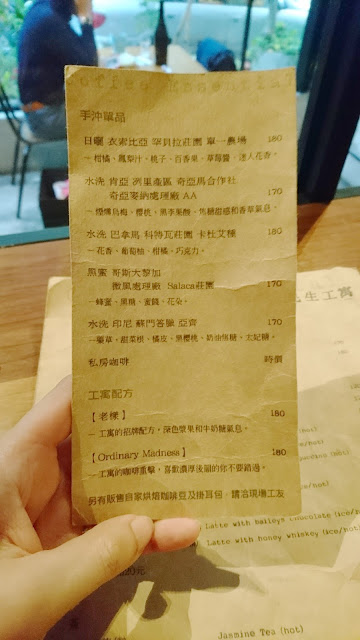 Coffee Essential
手沖單品
日曬 衣索比亞 罕貝拉莊園 單一農場 180
－柑橘、鳳梨汁、桃子、百香果、草莓醬、迷人花香。
水洗 肯亞 涅里產區 奇亞馬合作社
奇亞麥納處理廠 AA 170
－煙燻烏梅、櫻桃、黑李果酸、焦糖甜感和香草氣息。
水洗 巴拿馬 科特瓦莊園 卡杜艾種 180
－花香、葡萄柚、柑橘、巧克力。
黑蜜 哥斯大黎加
微風處理廠 Salaca莊園 170
－蜂蜜、黑糖、蜜餞、花朵。
水洗 印尼 蘇門答臘 亞齊 170
－藥草、甜菜根、橘皮、黑櫻桃、奶油焦糖、太妃糖。
私房咖啡 時價
工寓配方
【老樣】 180
－工寓的招牌配方，深色漿果和牛奶糖氣息。
【Ordinary Madness】 180
－工寓的咖啡重擊，喜歡濃厚後韻的你不要錯過。
另有販售自家烘焙咖啡豆及掛耳包，請洽現場工友
生工寓
(hot)
Latte with baileys chocolate (hot/ice)
Latte with honey whiskey (hot/ice)
20元
Jasmine Tea (hot)